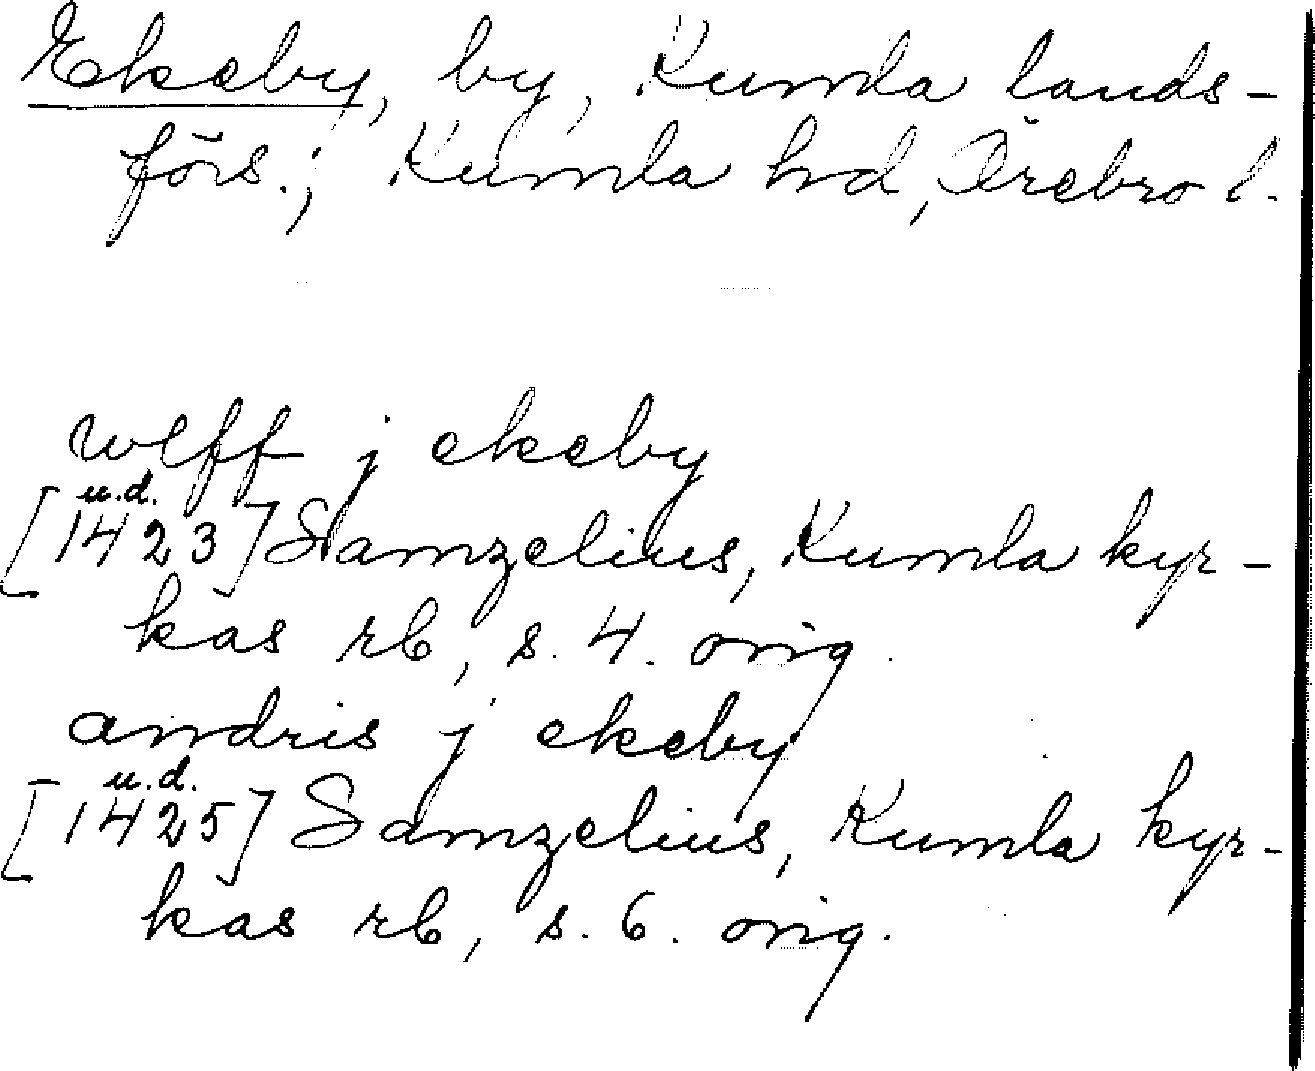 Ekeby, by, Kumla lands-
förs.; Kumla hd, Örebro l.
wlff j ekeby
u.d.
[1423] Samzelius, Kumla kyr-
kas rb, s. 4. orig.
andris j ekeby
u.d.
[1425] Samzelius, Kumla kyr-
kas rb, s. 6. orig.